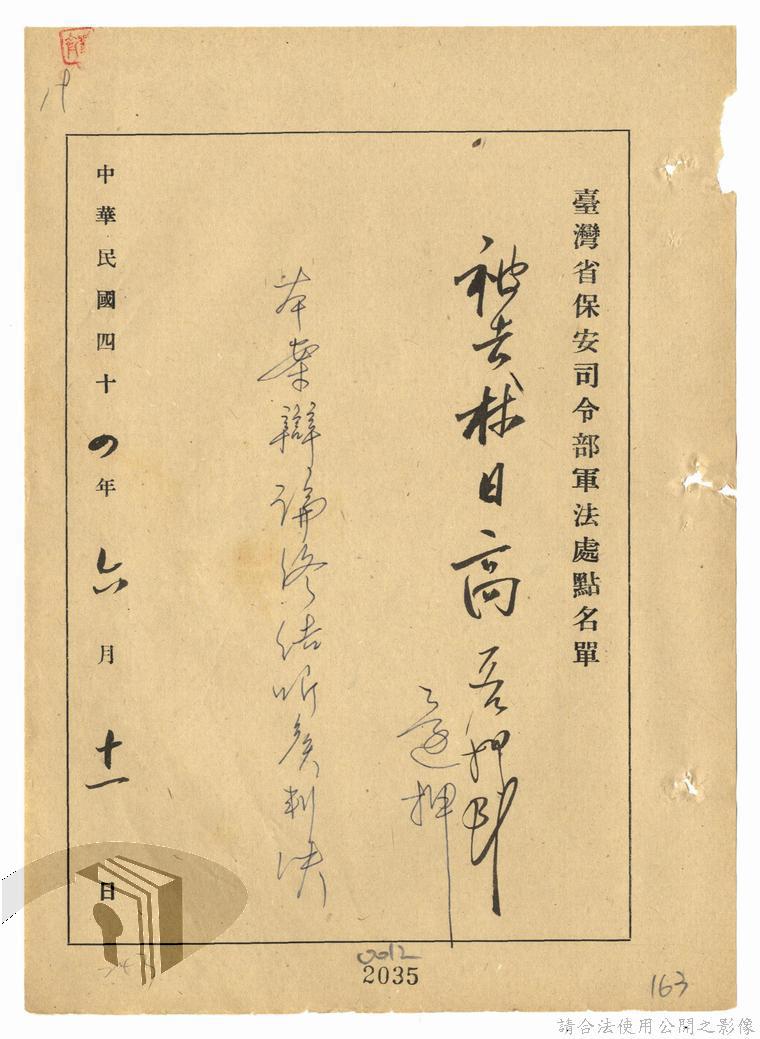 臺灣省保安司令部軍法處點名單
被告林日高 在押到
還押
本案辯論終結听候判決
中華民國四十四年六月十一日
0012
2035
163
請合法使用公開之影像